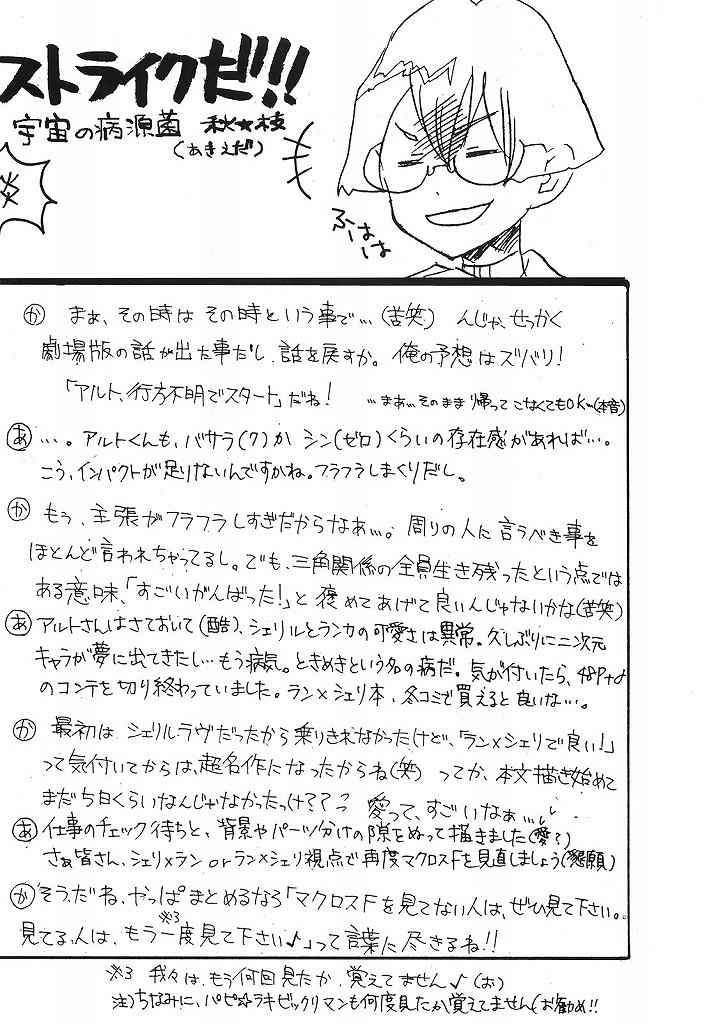 ストライクだ!!!
宇宙の病源菌 秋★枝
(あきえだ)
炎
ふーははー
か まぁ、その時は その時という事で…(苦笑) んじゃ、せっかく
劇場版の話が出た事だし、話を戻すか。俺の予想はズバリ!
「アルト、行方不明でスタート」だね! …まぁ…そのまま帰ってこなくてもOK…(本音)
あ …。アルトくんも、バサラ(7)か シン(ゼロ)くらいの存在感があれば…。
こう、インパクトが足りないんですかね。フラフラしまくりだし。
か もう、主張がフラフラしすぎだからなぁ…。周りの人に言うべき事を
ほとんど言われちゃってるし。でも、三角関係の全員生き残ったという点では
ある意味、「すごいがんばった!」と褒めてあげて良いんじゃないかな(苦笑)
あ アルトさんはさておいて(酷)、シェリルとランカの可愛さは異常。久しぶりに二次元
キャラが夢に出てきたし…もう病気。ときめきという名の病だ。気が付いたら、48P+α
のコンテを切り終わっていました。ラン×シェリ本、冬コミで買えると良いな…。
か 最初は シェリルラヴだったから乗りきれなかったけど、「ラン×シェリで良い!」
って気付いてからは、超名作になったからね(笑) ってか、本文描き始めて
まだ5日くらいなんじゃなかったっけ??? 愛って、すごいなぁ…
あ 仕事のチェック待ちと、背景やパーツ分けの隙をぬって描きました(愛?)
さぁ皆さん、シェリ×ラン or ラン×シェリ視点で再度マクロスFを見直しましょう(懇願)
か そうだね、やっぱまとめるなら「マクロスFを見てない人は、ぜひ見て下さい。
見てる人は、もう※3一度見て下さい♪」って言葉に尽きるね!!
※3 我々は、もう何回見たか、覚えてません♪(お)
注)ちなみに、パピ☆ラキビックリマンも何度見たか覚えてません(お勧め!!